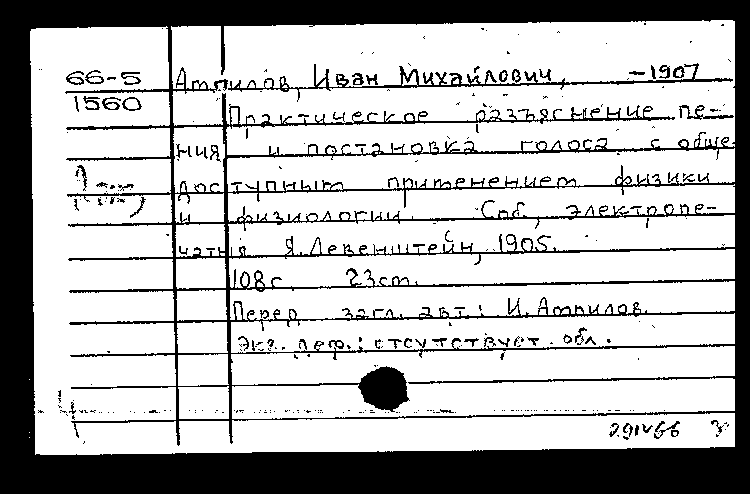 66-5 Атпилов, Иван Михайлович, -1907
1560
Практическое разъяснение пе-
ния и постановка голоса с обще
доступным применением физики
и физиологии. Спб., электропе-
чатня Я. Левенштейн, 1905.
108с. 23см.
Перед загл. авт.: И. Атпилов.
Экз. деф.: отсутствует обл.